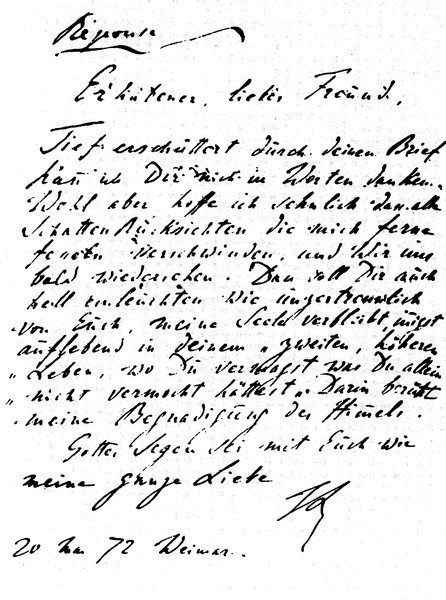 Réponse
Erhabener, lieber Freund,
Tief erschüttert durch deinen Brief
kan̄ ich Dir nicht in Worten danken.
Wohl aber hoffe ich sehnlich dass alle
Schatten Rücksichten die mich ferne
verschwinden, und wir uns
bald wiedersehen. Dan̄ soll Dir auch
hell einleuchten wie unzertrennlich
von Euch, meine Seele verbleibt innigst
auflebend in deinem „zweiten, höheren
„Leben, wo Du vermagst was Du allein
„nicht vermocht hättest". Darin beruht
meine Begnadigung des Him̄els.
Gottes Segen sei mit Euch wie
meine ganze Liebe
20 Mai 72 Weimar.